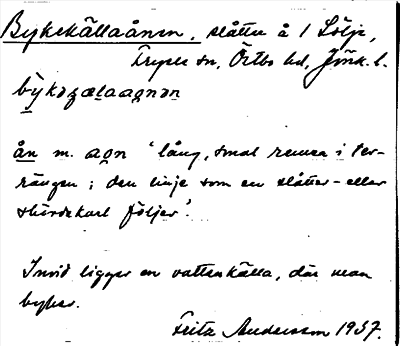 Bykekällaånen, slåtter å 1 Sölje,
Fryele sn, Östbo hd, Jönk. l.
bykəʒælaaonən
ån m. aon 'lång, smal remsa i ter-
rängen; den linje som en slåtter- eller
skördekarl följer'.
Invid ligger en vattenkälla, där man
byker.
Fritz Andersson 1937.